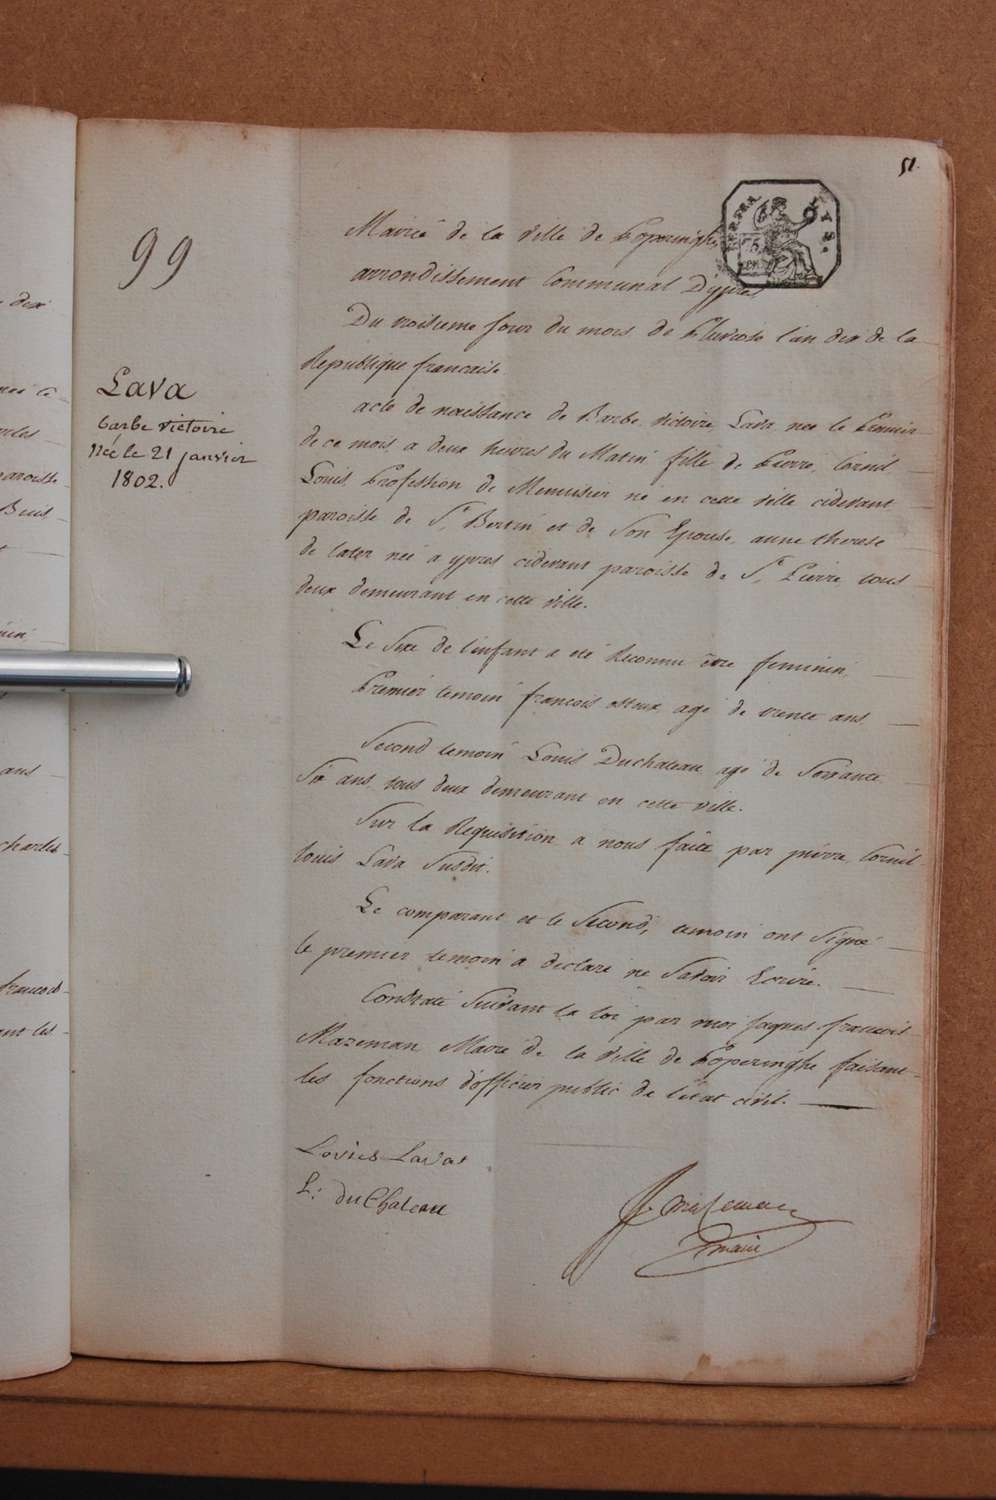 51.
99
Mairié de la ville de Poperinghe
arrondissement Communal D'ypres
Du troisieme jour du mois de Pluviose l'an dix de la
Republique francaise
Lava
barbe victoire
née le 21 janvier
1802.
acte de naissance de Barbe victoire Lava née le Premier
de ce mois a deux heures du Matin fille de Pierre Cornil
Louis Profession de Menuisier né en cette ville cidevant
paroisse de St. Bertin et de Son Epouse anne therese
de later née a ypres cidevant paroisse de St. Pierre tous
deux demeurant en cette ville.
Le Sexe de l'enfant a été Reconnu être feminin
Premier temoin francois agé de trente ans
Second temoin Louis Duchateau agé de Soixante
Six ans tous deux demeurant en cette ville.
Sur la Requisition a nous faite par pierre Cornil
louis Lava Susdit.
Le comparant et le Second, temoin ont Signé
le premier temoin a declaré ne Savoir Ecrire.
Constaté Suivant la loi par moi jaques francois
Mazeman Maire de la ville de Poperinghe faisant
les fonctions d'officier public de l'etat civil.
Lovies Lavat
L: duChateau
maire